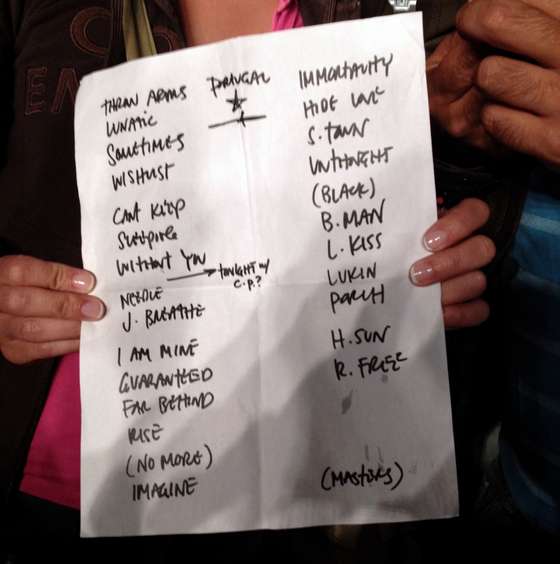 THROW ARMS
LUNATIC
SOMETIMES
WISHLIST
CANT KEEP
WITHOUT YOU → TONIGHT W/
C.P.?
NEEDLE
J. BREATHE
I AM MINE
GUARANTEED
FAR BEHIND
RISE
(NO MORE)
IMAGINE
IMMORTALITY
HIDE LOVE
S. TOWN
UNTHOUGHT
(BLACK)
B. MAN
L. KISS
LUKIN
PORCH
H. SUN
R. FREE
(MASTERS)